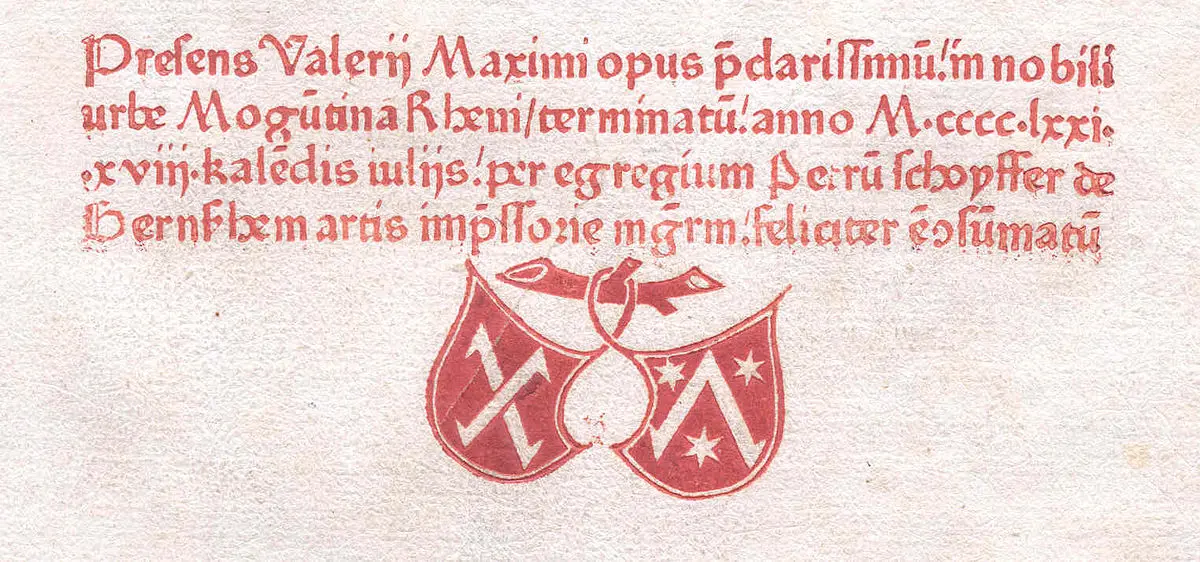 Preſens Valerij Maximi opus p̄clariſſimū! in nobili
urbe Mogūtina Rheni/terminatū! anno M·cccc·lxxi·
·xviij·kalēdis iulijs! per egregium Petrū ſchoyffer de
Gernſhem artis imp̄ſſorie mḡrm! feliciter ē ↄſūmatū